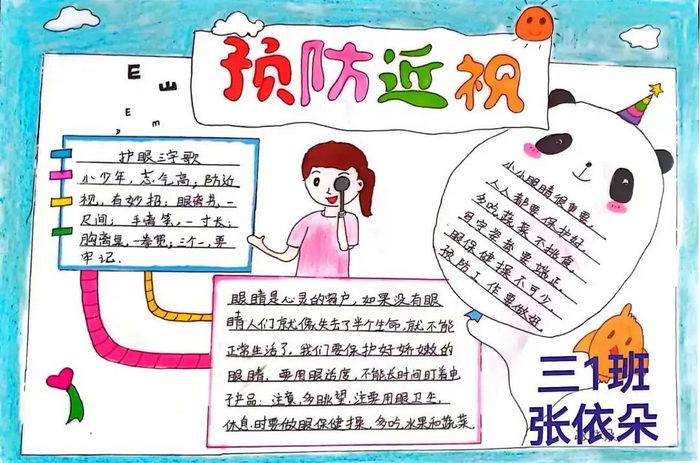 预防近视
E
E
E
护眼三字歌
小少年，志气高，防近
视，有妙招：眼离书，一
尺间；手离笔，一寸长；
胸离桌，一拳宽；三个一，要
牢记．
小小眼睛很重要，
人人都要保护好，
多吃蔬菜不挑食，
眼保健操不可少，
预防工作要做好．
眼睛是心灵的窗户，如果没有眼
睛人们就像失去了半个生命，就不能
正常生活了．我们要保护好娇嫩的
眼睛，要用眼适度，不能长时间盯着电
子产品；注意，多眺望，注要用眼卫生，
休息时要做眼保健操，多吃水果和蔬菜
三1班
张依朵